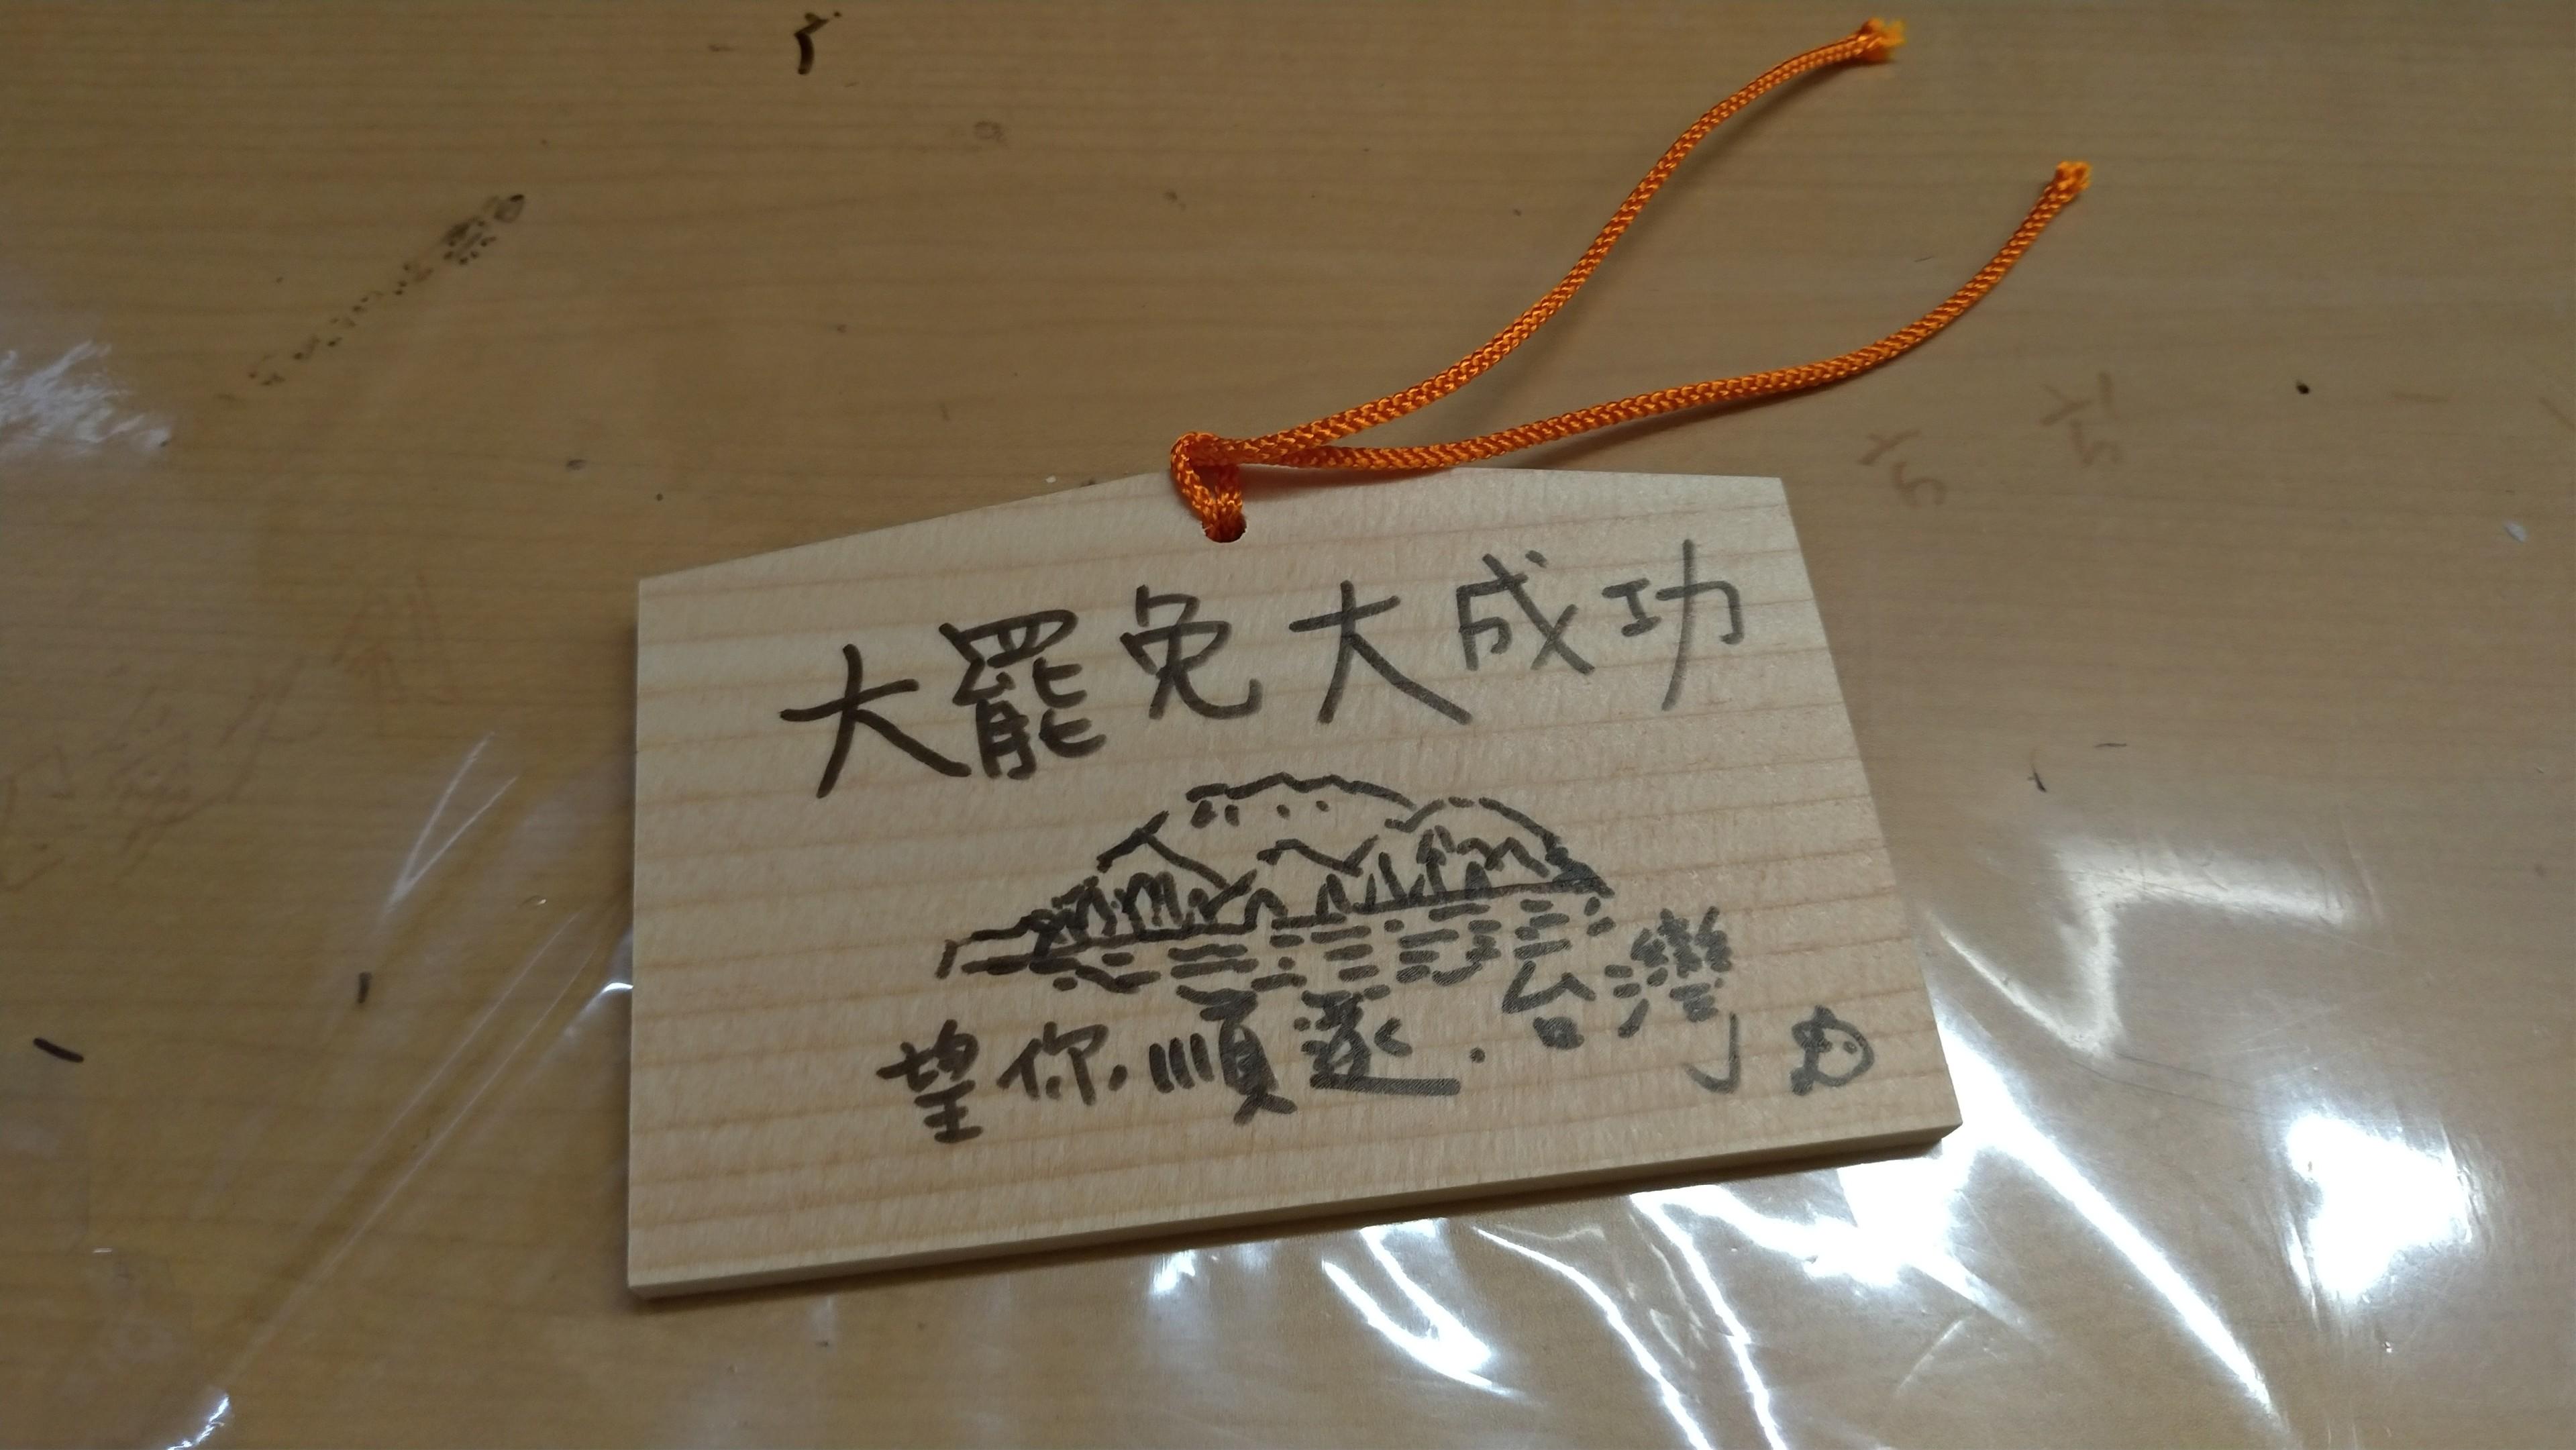 大罷免大成功
望你順遂.台灣